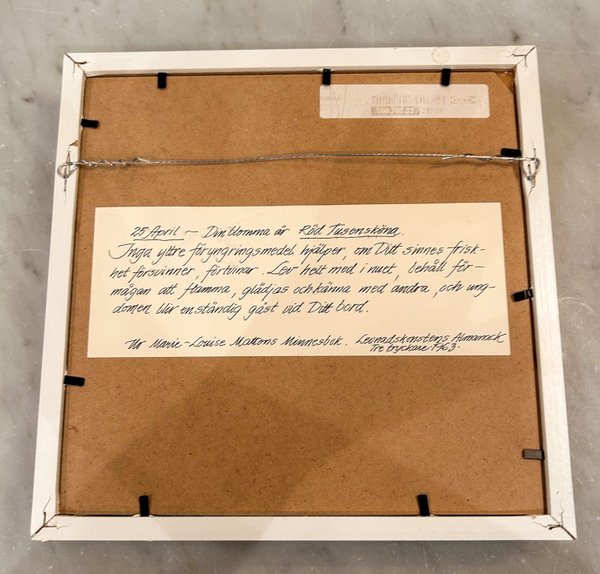 25 April — Din blomma är Röd Tusensköna.
Inga yttre föryngringsmedel hjälper, om Ditt sinnes frisk-
het försvinner, förtvinar. Lev helt med i nuet, behåll för-
mågan att flamma, glädjas och känna med andra, och ung-
domen blir en ständig gäst vid Ditt bord.
Ur Marie-Louise Mattons Minnesbok. Levnadskonstens Almanack
Tre tryckare. 1963.